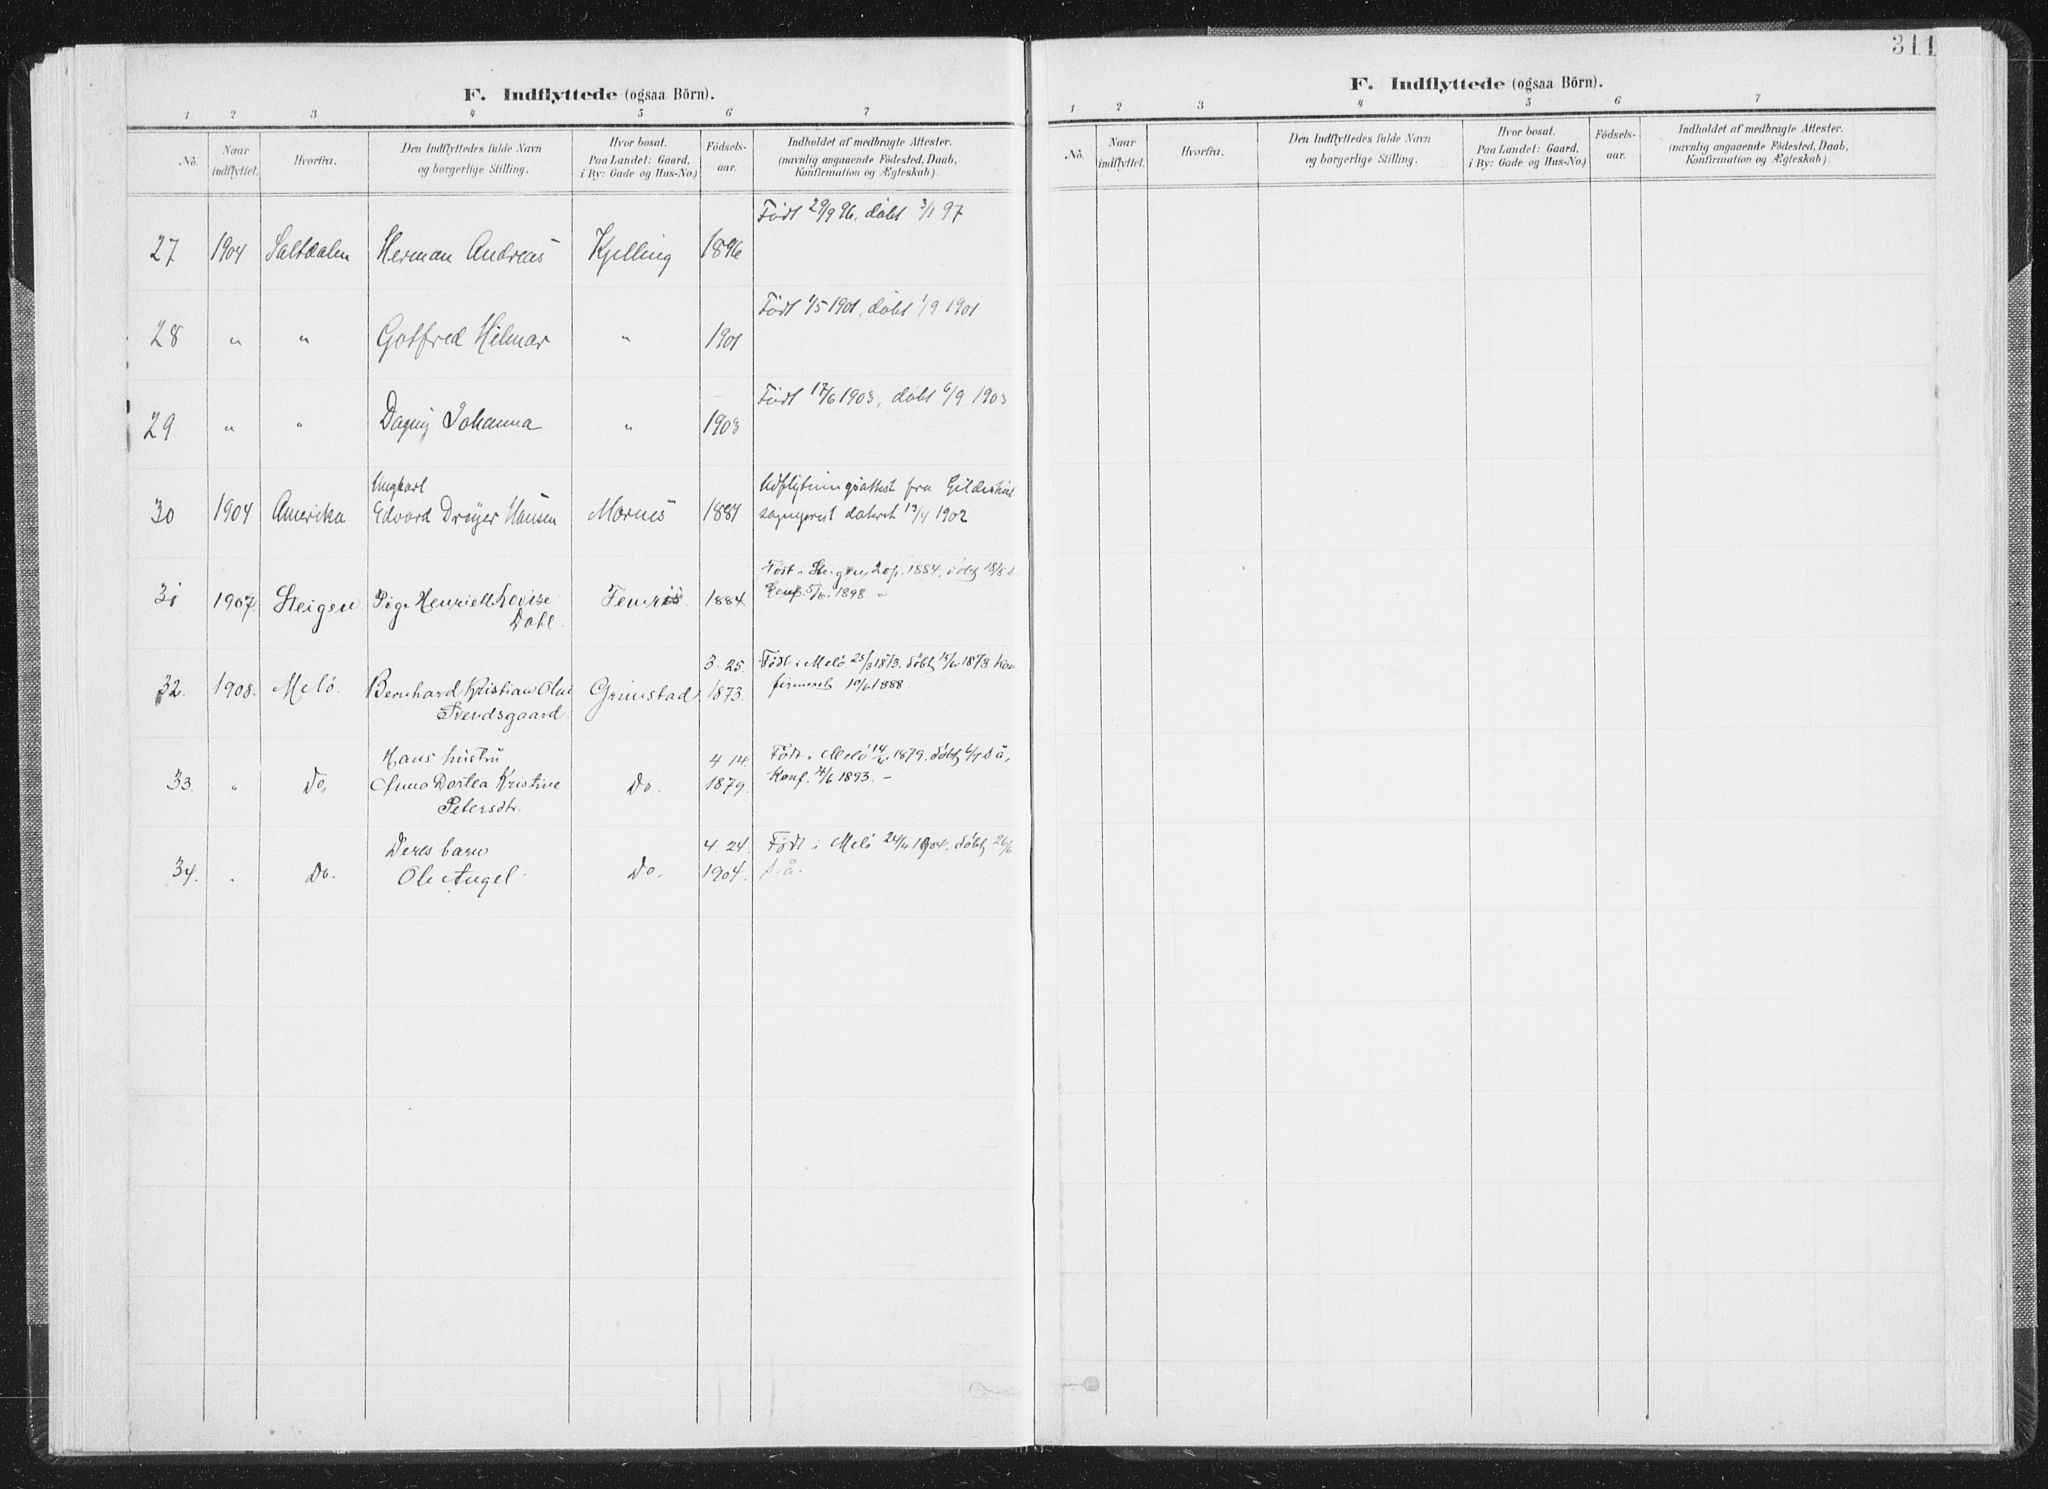 311
F. Indflyttede (ogsaa Börn).
1 2 3 4 5 6 7
No. Naar indflyttet. Hvorfra. Den Indflyttedes fulde Navn og borgerlige Stilling. Hvor bosat. Paa Landet: Gaard, i By: Gade og Hus-No.) Fødsels-aar. Indholdet af medbragte Attester. (navnlig angaaende Fødested, Daab, Konfirmation og Ægteskab).
Født 29/9 96, døbt 3/1 97
27 1904 Saltdalen Herman Andreas Kjelling 1896
Født 1/5 1901, døbt 1/9 1901
28 " " Gotfred Hilmar " 1901
Født 17/6 1903, døbt 6/9 1903
29 " " Dagny Johanna " 1903
Ungkarl Udflytningsattest fra Gildeskaal
30 1904 Amerika Edvard Dreyer Hansen Mornes 1881 sogneprest dateret 13/4 1902
Født i Steigen 1884, døbt 18/5
31 1907. Steigen Pige Henriette Lovise 1884. Konf. 5/6 1898 –
Dahl.
3. 25. Født i Melö 25/3 1873. döbt 15/6 1873. Kon-
32. 1908. Melö. Bernhard Kristian Grimstad 1873. firmeret 10/6 1888.
Svendsgaard.
Hans hustru 4 14. Født i Melö 14/4 1879. döbt 6/7 s å,
33. " Do. Anna Dortea Kristine Do. 1879. Konf. 4/6 1893. –
Petersdtr.
Deres barn 4. 24. Født i Melö 24/4 1904. döbt 26/6
34. " Do. Ole Angel. Do. 1904. s. å.
F. Indflyttede (ogsaa Börn).
1 2 3 4 5 6 7
No. Naar indflyttet. Hvorfra. Den Indflyttedes fulde Navn og borgerlige Stilling. Hvor bosat. Paa Landet: Gaard, i By: Gade og Hus-No.) Fødsels-aar. Indholdet af medbragte Attester. (navnlig angaaende Fødested, Daab, Konfirmation og Ægteskab)